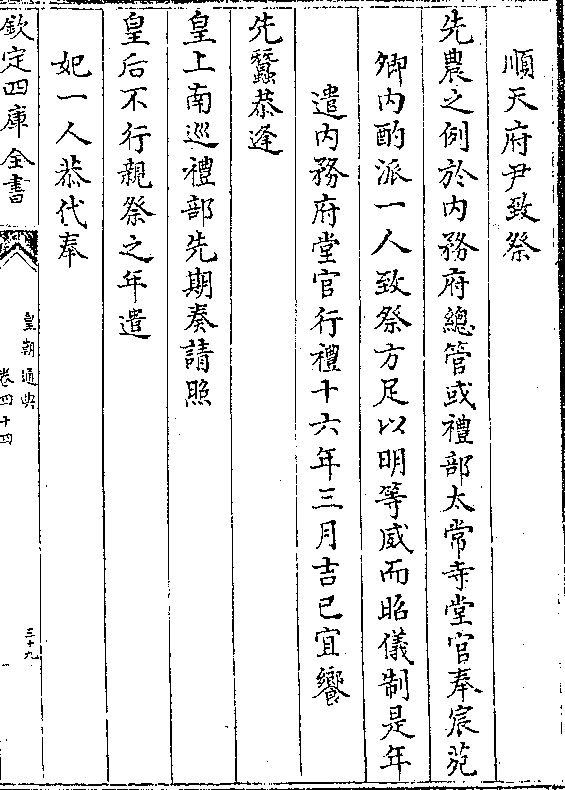 順天府尹致祭
先農之例於内務府總管或禮部太常寺堂官奉宸苑
卿内酌派一人致祭方足以明等威而昭儀制是年
遣内務府堂官行禮十六年三月吉已宜饗
先蠶恭逢
皇上南巡禮部先期奏請照
皇后不行親祭之年遣
妃一人恭代奉
欽定四庫全書
皇朝通典
卷四十四
三十九